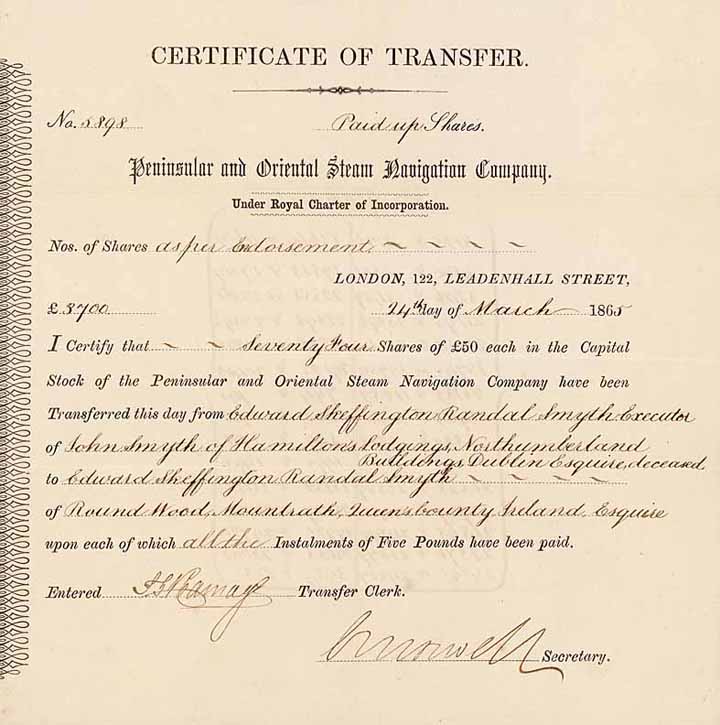 CERTIFICATE OF TRANSFER.
No. 5898 Paid up Shares.
Peninsular and Oriental Steam Navigation Company.
Under Royal Charter of Incorporation.
Nos. of Shares as per Endorsement
LONDON, 122, LEADENHALL STREET,
£3700 24th day of March 1865
I Certify that Seventy Four Shares of £50 each in the Capital
Stock of the Peninsular and Oriental Steam Navigation Company have been
Transferred this day from Edward Skeffington Randal Smyth Executor
of John Smyth of Hamilton's Lodgings, Northumberland
Buildings Dublin Esquire, deceased
to Edward Skeffington Randal Smyth
of Round Wood, Mountrath, Queens County Ireland, Esquire
upon each of which all the Instalments of Five Pounds have been paid.
Entered Transfer Clerk.
Secretary.